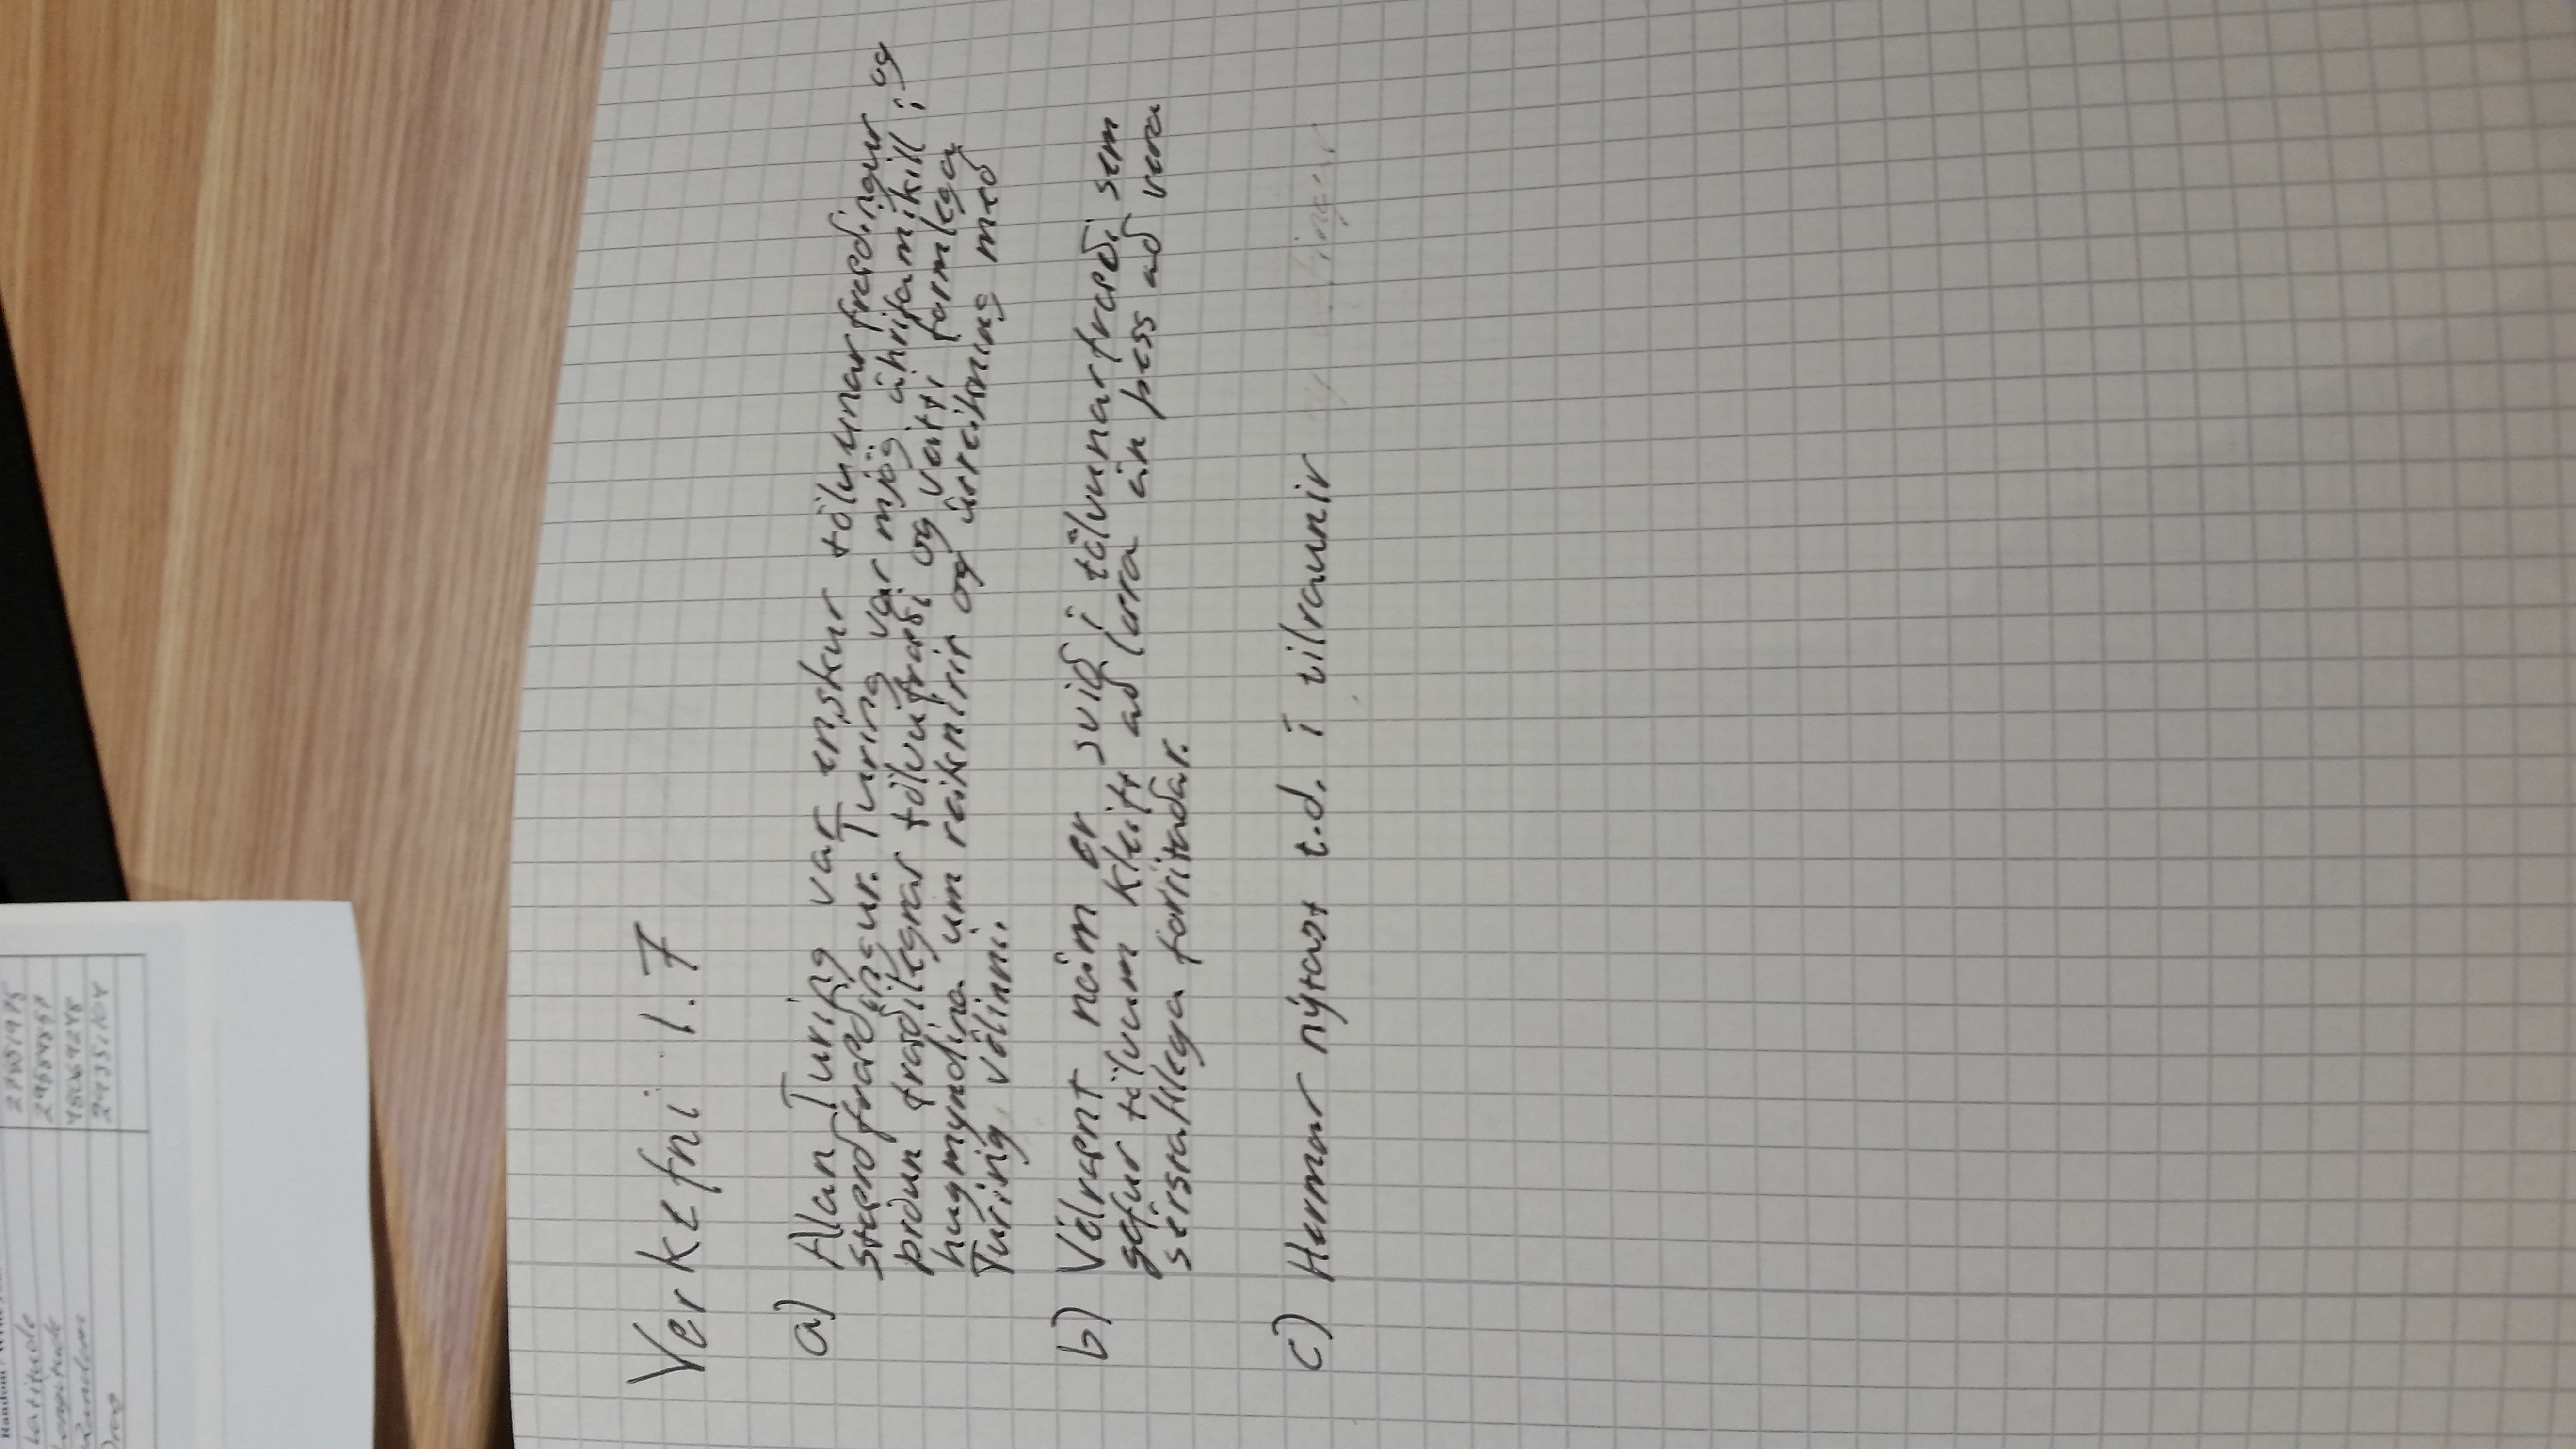 Latitude 27851975
Longitude 29584857
Random 48069248
29351104
Verkefni 1.7
a) Alan Turing var enskur tölvunarfræðingur og
stærðfræðingur. Turing var mjög áhrifamikill í
þróun fræðilegrar tölvufræði og veitti formlega
hugmyndina um reiknirir og úrreikning með
Turing vélinni.
b) Vélrænt nám er svið í tölvunarfræði sem
gefur tölvum kleift að læra án þess að vera
sérstaklega forritaðar.
c) Hermar nýtast t.d. í tilraunir